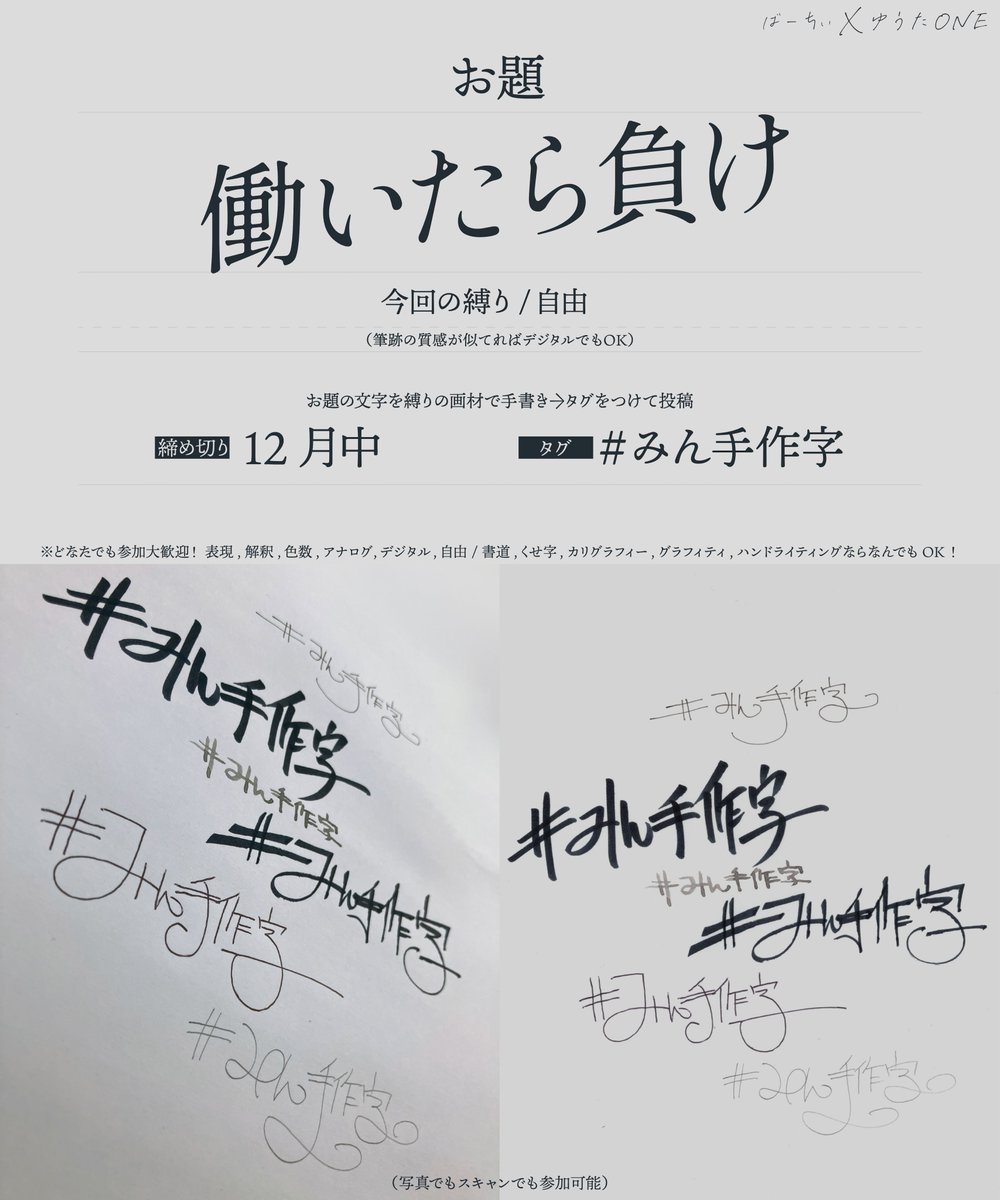 ばーちぃ×ゆうたONE
お題
働いたら負け
今回の縛り / 自由
(筆跡の質感が似てればデジタルでもOK)
お題の文字を縛りの画材で手書き→タグをつけて投稿
締め切り 12月中
タグ #みん手作字
※どなたでも参加大歓迎! 表現, 解釈, 色数, アナログ, デジタル, 自由 / 書道, くせ字, カリグラフィー, グラフィティ, ハンドライティングならなんでもOK!
#みん手作字
#みん手作字
#みん手作字
#みん手作字
#みん手作字
#みん手作字
#みん手作字
#みん手作字
#みん手作字
#みん手作字
#みん手作字
#みん手作字
(写真でもスキャンでも参加可能)